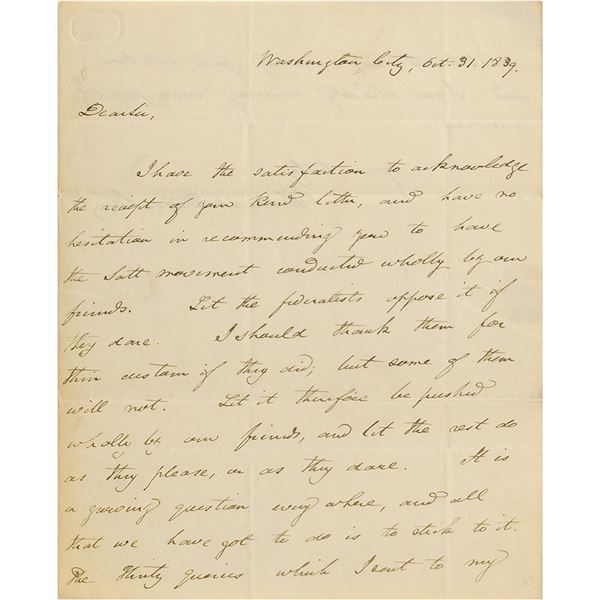 Washington City, Oct. 31. 1839.
Dear Sir,
I have the satisfaction to acknowledge
the receipt of your kind letter, and have no
hesitation in recommending you to have
the Salt movement conducted wholly by our
friends. Let the federalists oppose it if
they dare. I should thank them for
their custom if they did; but some of them
will not. Let it therefore be pushed
wholly by our friends, and let the rest do
as they please, or as they dare. It is
a growing question every where, and all
that we have got to do is to stick to it.
The thirty queries which I sent to my